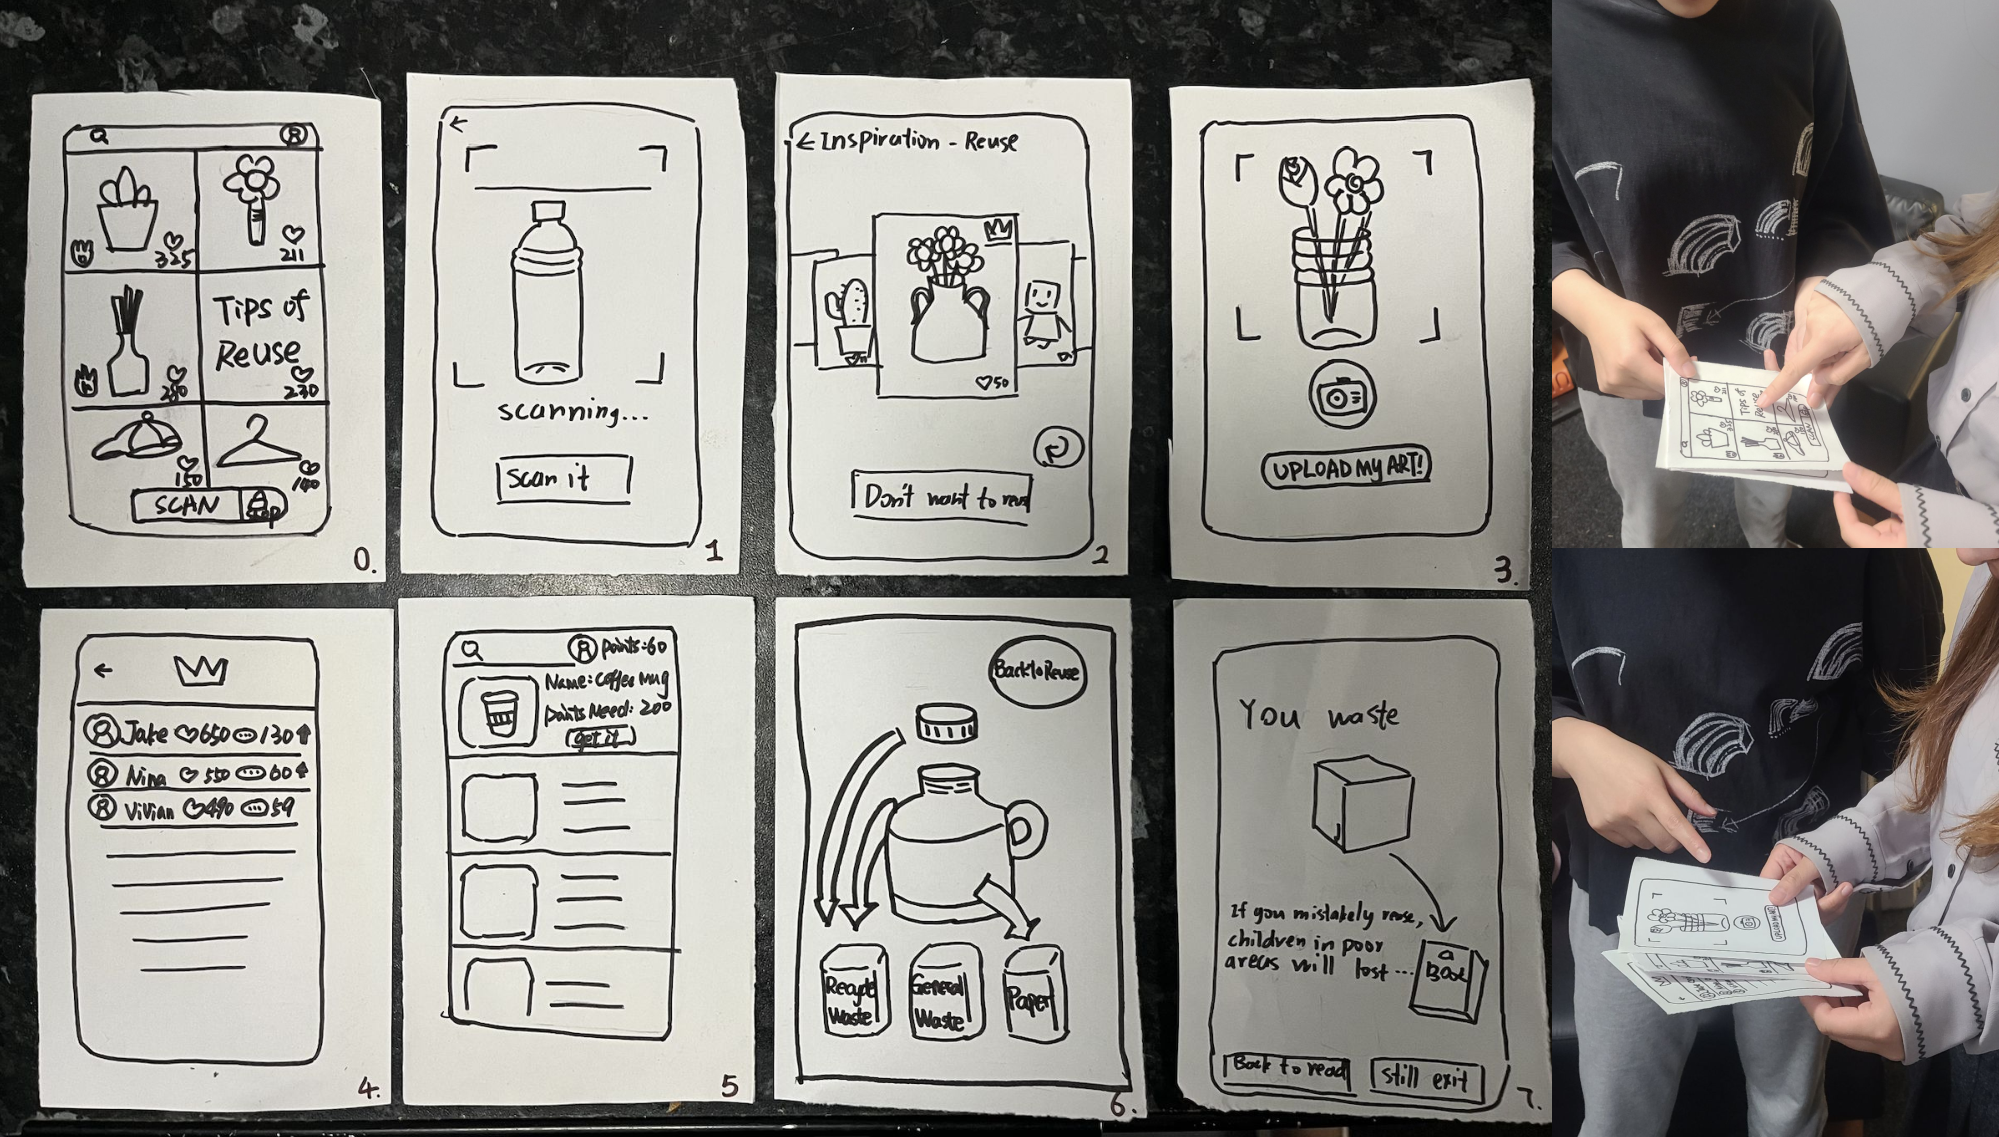 325
211
Tips of
Reuse
280
230
150
140
SCAN
0.
scanning...
Scan it
1
← Inspiration - Reuse
50
Don't want to reuse
2
UPLOAD MY ART!
3.
Jake 650 130
Nina 550 60
Vivian 490 59
4.
points:60
Name: Coffee Mug
points Need: 200
get it
5
Back to Reuse
Recycle
Waste
General
Waste
Paper
6.
You waste
If you mistakely reuse,
children in poor
areas will lost...
Back to read
Still exit
7.
Tips of
UPLOAD MY ART!